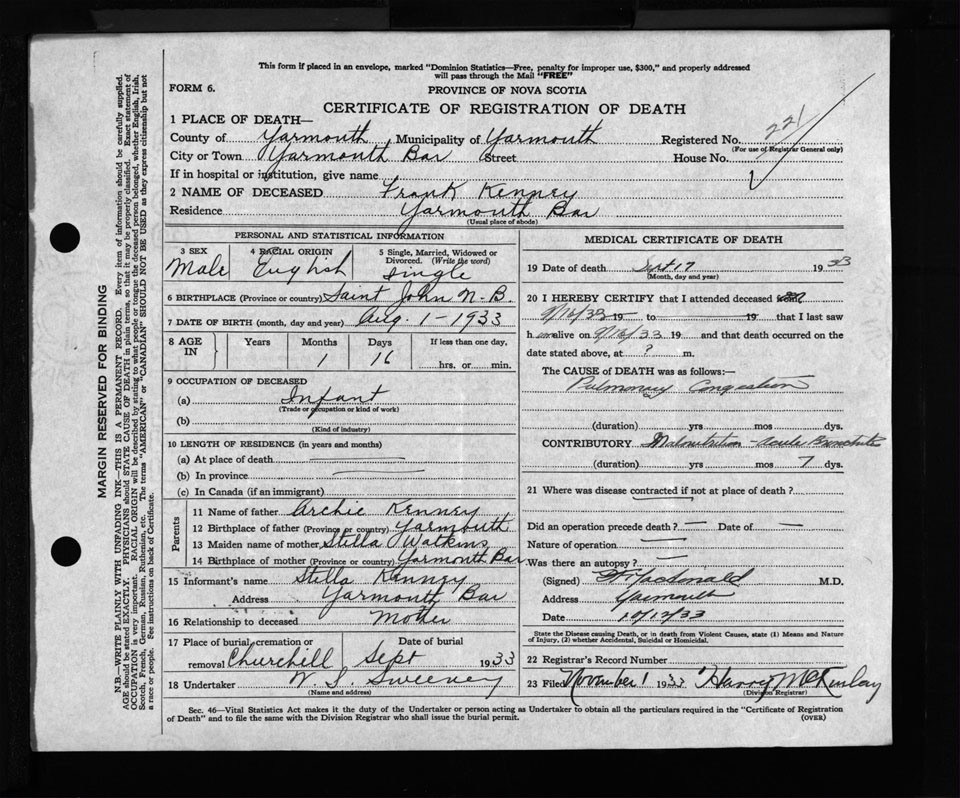 This form if placed in an envelope, marked "Dominion Statistics—Free, penalty for improper use, $300," and properly addressed
will pass through the Mail "FREE"
FORM 6.
PROVINCE OF NOVA SCOTIA
CERTIFICATE OF REGISTRATION OF DEATH
1 PLACE OF DEATH—
County of Yarmouth Municipality of Yarmouth Registered No. 221
(For use of Registrar General only)
City or Town Yarmouth Bar Street House No.
If in hospital or institution, give name
2 NAME OF DECEASED Frank Kenney
Residence Yarmouth Bar
(Usual place of abode)
PERSONAL AND STATISTICAL INFORMATION
3 SEX 4 RACIAL ORIGIN 5 Single, Married, Widowed or
Divorced. (Write the word)
Male English Single
6 BIRTHPLACE (Province or country) Saint John N.B.
7 DATE OF BIRTH (month, day and year) Aug. 1-1933
8 AGE IN Years Months Days If less than one day,
1 16 hrs. or min.
9 OCCUPATION OF DECEASED
(a) Infant
(Trade or occupation or kind of work)
(b)
(Kind of industry)
10 LENGTH OF RESIDENCE (in years and months)
(a) At place of death
(b) In province
(c) In Canada (if an immigrant)
Parents
11 Name of father Archie Kenney
12 Birthplace of father (Province or country) Yarmouth
13 Maiden name of mother Stella Watkins
14 Birthplace of mother (Province or country) Yarmouth Bar
15 Informant's name Stella Kenney
Address Yarmouth Bar
16 Relationship to deceased Mother
17 Place of burial, cremation or Date of burial
removal Churchill Sept 1933
18 Undertaker W. S. Sweeney
(Name and address)
MEDICAL CERTIFICATE OF DEATH
19 Date of death Sept 17 1933
(Month, day and year)
20 I HEREBY CERTIFY that I attended deceased
9/16/33 19 — to 19 that I last saw
h im alive on 9/16/33 19 and that death occurred on the
date stated above, at ? m.
The CAUSE of DEATH was as follows:—
Pulmonary Congestion
(duration) yrs mos dys.
CONTRIBUTORY Malnutrition - Acute Bronchitis
(duration) yrs mos 7 dys.
21 Where was disease contracted if not at place of death?
Did an operation precede death? — Date of —
Nature of operation —
Was there an autopsy? —
(Signed) Macdonald M.D.
Address Yarmouth
Date 10/12/33
State the Disease causing Death, or in death from Violent Causes, state (1) Means and Nature
of Injury, (2) whether Accidental, Suicidal or Homicidal.
22 Registrar's Record Number
23 Filed November 1 1933 Harry McKinlay
(Division Registrar)
Sec. 46—Vital Statistics Act makes it the duty of the Undertaker or person acting as Undertaker to obtain all the particulars required in the "Certificate of Registration
of Death" and to file the same with the Division Registrar who shall issue the burial permit. (OVER)
MARGIN RESERVED FOR BINDING
N.B.—WRITE PLAINLY WITH UNFADING INK—THIS IS A PERMANENT RECORD. Every item of information should be carefully supplied.
AGE should be stated EXACTLY. PHYSICIANS should STATE CAUSE OF DEATH in plain terms, so that it may be properly classified. Exact statement of
OCCUPATION is very important. RACIAL ORIGIN will be described by stating to what people or tongue the deceased person belonged, whether English, Irish,
Scotch, French, German, Russian, Ruthenian, etc. The terms "AMERICAN" or "CANADIAN" SHOULD NOT BE USED as they express citizenship but not
a race or people. See instructions on back of Certificate.